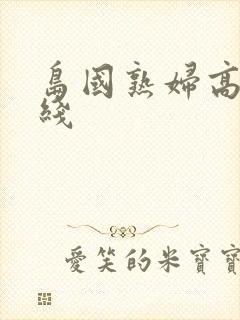 島國熟婦高
綫
愛笑的米寶寶